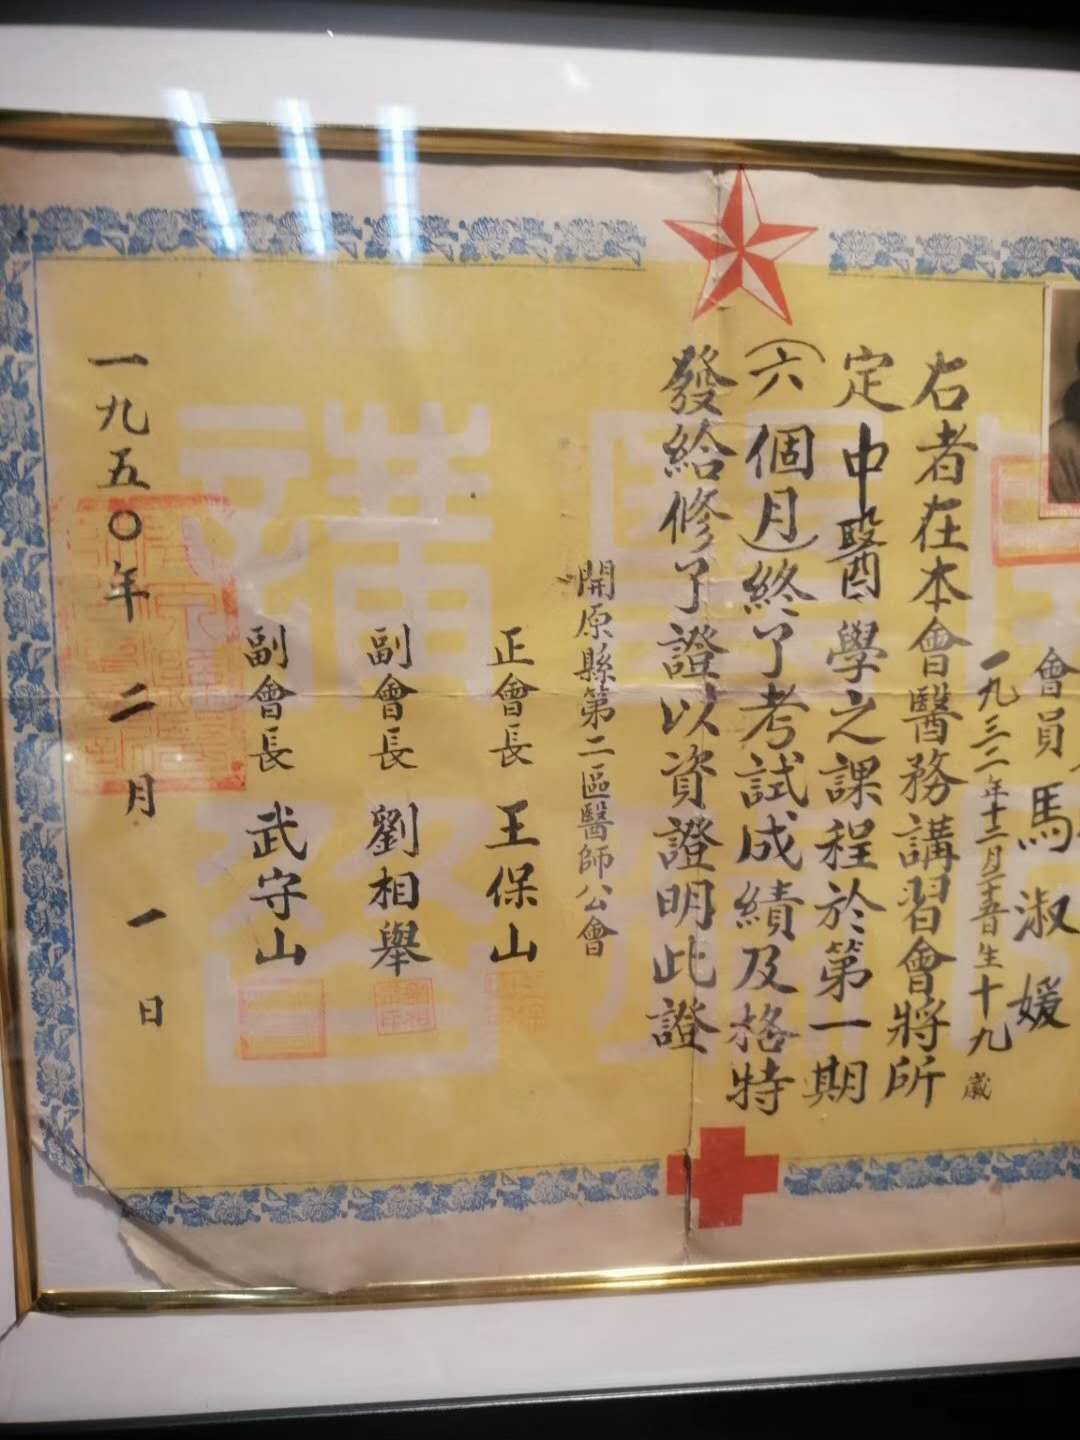 會員馬淑媛
一九三二年十二月二十五日生十九歲
右者在本會醫務講習會將所
定中醫學之課程於第一期
(六個月)終了考試成績及格特
發給修了證以資證明此證
開原縣第二區醫師公會
正會長 王保山
副會長 劉相舉
副會長 武守山
一九五〇年二月一日